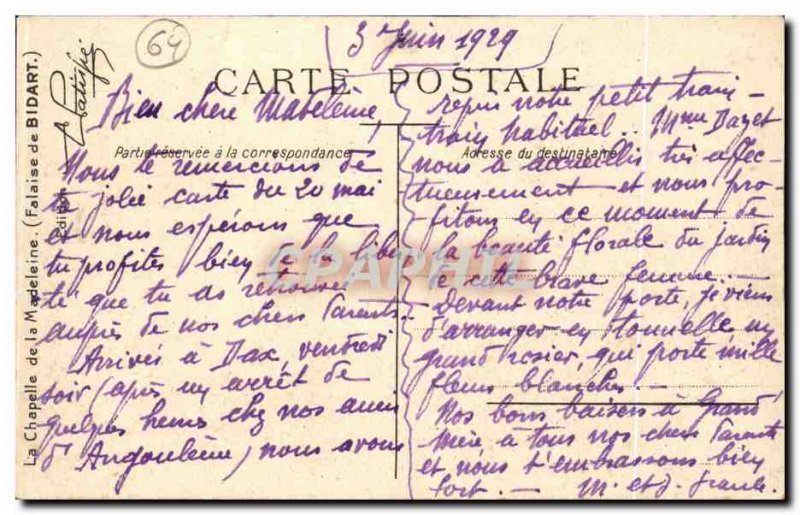 La Chapelle de la Madeleine. (Falaise de BIDART.)
Edition
64
3 Juin 1929
CARTE POSTALE
Partie réservée à la correspondance
Adresse du destinataire
Bien chère Madeleine,
Nous te remercions de
ta jolie carte du 20 mai
et nous espérons que
tu profites bien de la liber
té que tu as retrouvée
auprès de nos chers Parents.
Arrivés à Dax, vendredi
soir (après un arrêt de
quelques heures chez nos amis
d'Angoulême) nous avons
repris notre petit train-
train habituel.. Mme Dayet
nous a accueillis très affec-
tueusement et nous pro-
fitons en ce moment de
la beauté florale du jardin
de cette brave femme. -
Devant notre porte, je viens
d'arranger en tonnelle un
grand rosier, qui porte mille
fleurs blanches. -
Nos bons baisers à Grand'
Mère à tous nos chers Parents
et nous t'embrassons bien
fort. - M. et J.
CPAPHIL